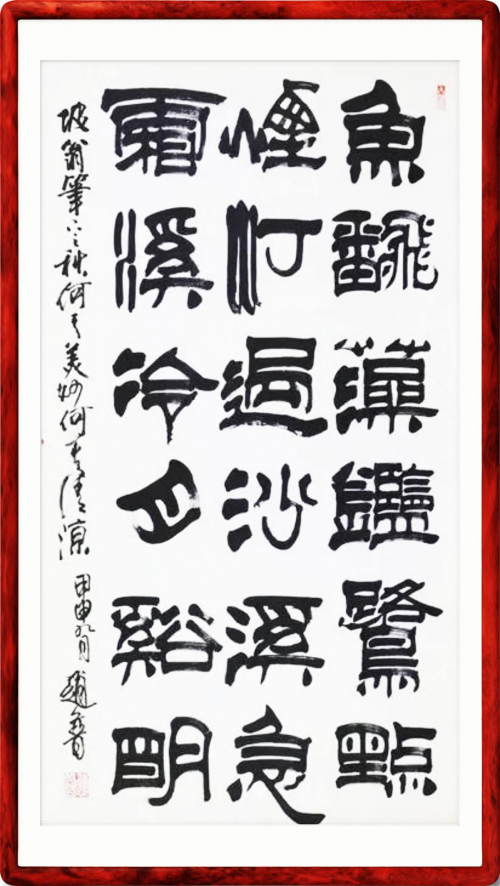 魚飜藻鑑鷺點
煙汀過沙溪急
霜溪冷月谿明
坡翁筆下之秋何等美妙何等清涼 甲申九月 趙